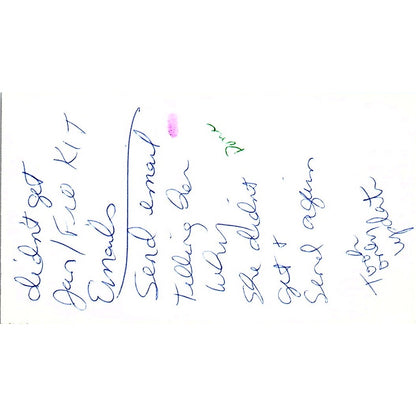 didn't get
Jan/Feb KIT
Emails
Send email
Telling her
Why
She didn't
get +
Send again